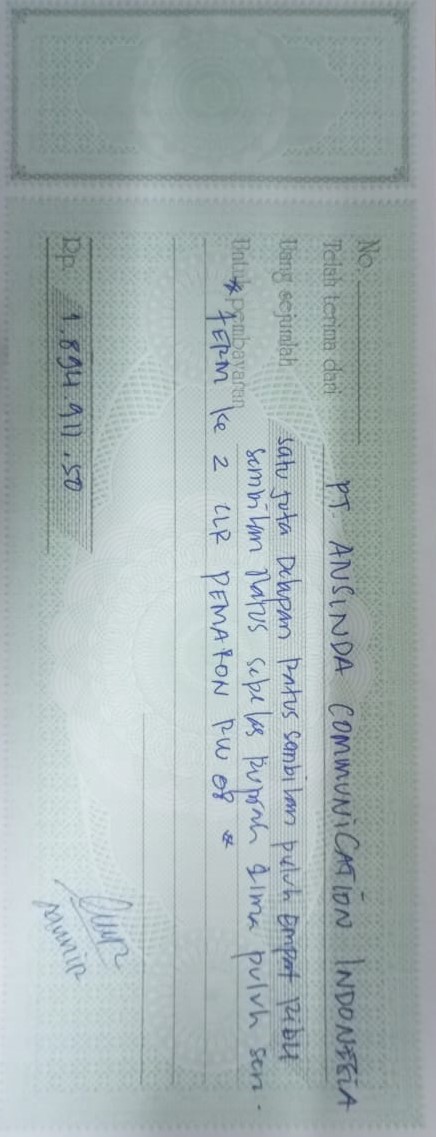 No.
Telah terima dari PT. ANSINDA COMMUNICATION INDONESIA
Uang sejumlah satu juta Delapan Ratus Sembilan puluh Empat Ribu
Sembilan Ratus sebelas Rupiah Lima puluh sen.
Untuk pembayaran
* TERM ke 2 CLR PEMARON RW 08 *
Rp. 1.894.911.50